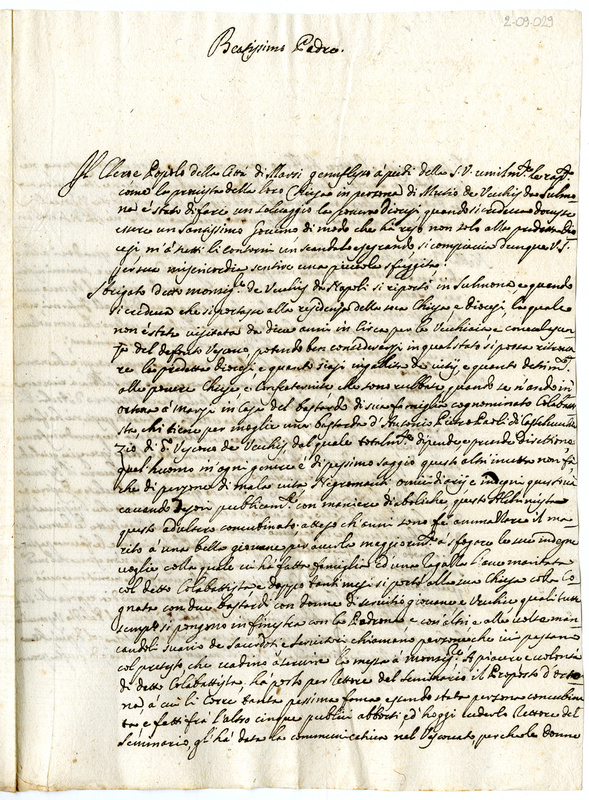 2-09-029
Beatissimo Padre.
Il Clero e Popolo della Città di Marsi genuflesso à piedi della S.V. umilm.te le rapp.
come la provista della loro Chiesa in persona di Mutio de Vecchij da Sulmo
na è stato di fare un selvaggio la povera Diocesi quando si credeva dovesse
essere un santissimo governo di modo che ha reso non solo alla predetta Dio
cesi m'à tutti li contorni un scandalo esecrando si compiaccia dunque V.S.
per sua misericordia sentire una piccola sfuggita:
Sbrigato detto monsig.re de Vecchij da Napoli si riportò in Sulmona, e quando
si credeva che si portasse alla residenza della sua Chiesa e diocesi, la quale
non è stata visitata da dieci anni in circa per la Vecchiaia e
del defonto Vescovo, potendo ben considerarsi in qual stato si possa ritrova
re la predetta diocesi, e quanto siasi di vitij, e quanto detrim.to
alle povere Chiese e Confraternite che sono rubbate, quando se n'andò in
Ortona à Marsi in Casa del bastardo di sua famiglia cognominato Colabatti
sta, chi tiene per moglie una bastarda d'Antonio Pietro Paoli di Castelvecchio
Zio di d.o Vescovo de Vecchij, dal quale total.te dipende, e prende direttione,
quel huomo in ogni genere è di pessimo saggio questo altri non fà,
che di persone di mala vita Negromanti omicidiarij e indegni
cavando Tesori publicam.te con maniere diaboliche questo
questo adultero concubinato atteso ch'anni sono fè ammazzare il ma
rito à una bella giovane per haverla maggiorm.te à sfogare le sue indegne
voglie colla quale vi hà fatto famiglia ed una ragazza l'have maritata
col detto Colabattista e doppo tanti mesi si portò alla sua Chiesa colla Co
gnata con due bastardi con donne di servitio giovane e Vecchie quali tutti
sempre si pongono in finestra con la Padrona e con altri e alle volte man
candoli suario de sacerdoti e servitori chiamano persone che ivi passano
col pretesto, che vadino à servire la messa à monsig.re A piacere e volontà
di detto Colabattista, hà posto per rettore del seminario il Preposto d'Orto
na) à cui li corre tanta pessima fama essendo stata persona concubina
ta e fatti frà l'altro cinque publici abborti ed hoggi vederlo Rettore del
Seminario, gl'hà data la communicativa nel Vescovato, perche le donne